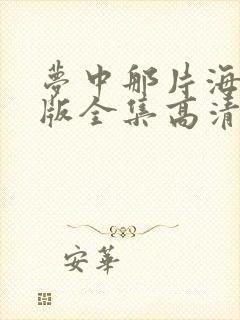 夢中那片海
版全集高清
安華